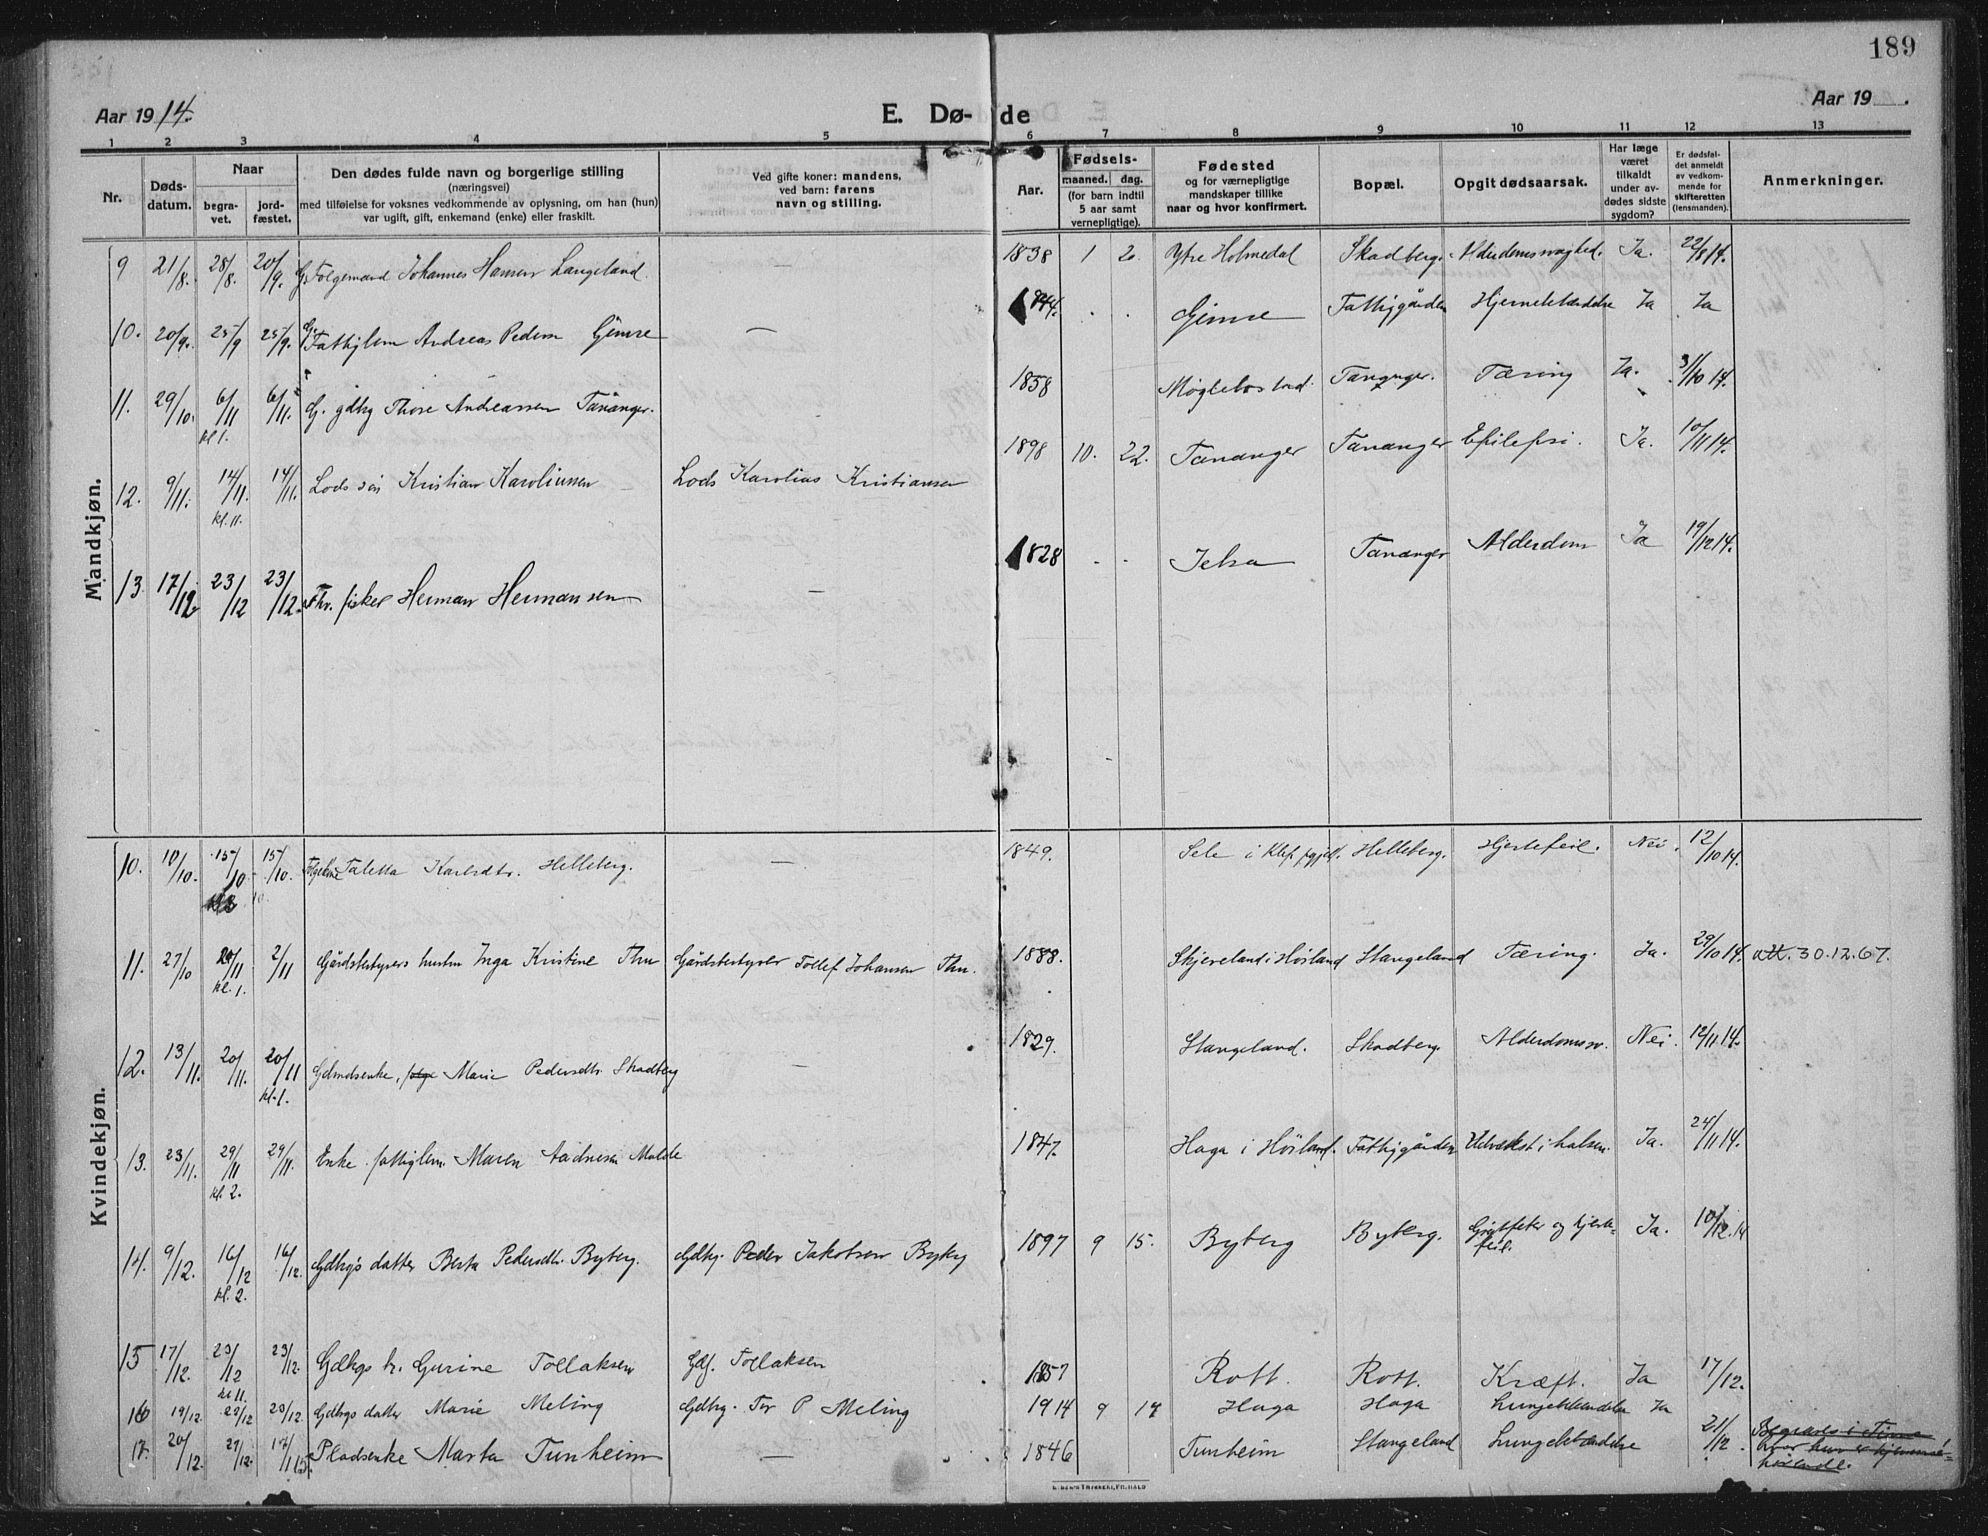 189
Aar 1914.
E. Dø-de
Aar 19 .
1 2 3 4 5 6 7 8 9 10 11 12 13
Nr.
Døds-datum.
Naar
begra-vet.
jord-fæstet.
Den dødes fulde navn og borgerlige stilling
(næringsvei)
med tilføielse for voksnes vedkommende av oplysning, om han (hun)
var ugift, gift, enkemand (enke) eller fraskilt.
Ved gifte koner: mandens,
ved barn: farens
navn og stilling.
Aar.
Fødsels-
maaned. dag.
(for barn indtil
5 aar samt
vernepligtige).
Fødested
og for værnepligtige
mandskaper tillike
naar og hvor konfirmert.
Bopæl.
Opgit dødsaarsak.
Har læge
været
tilkaldt
under av-
dødes sidste
sygdom?
Er dødsfal-
det anmeldt
av vedkom-
mende for
skifteretten
(lensmanden).
Anmerkninger.
Mandkjøn.
9 21/8. 28/8. 20/9. G. Folgemand Johannes Hansen Langeland. — 1838 1 2. Ytre Holmedal Skadberg. Alderdomssvaghed. Ja. 22/8 14.
10. 20/9. 25/9 25/9. G. Fattiglem Andreas Pedersen Gimre — 1844. . . Gimre Fattiggården Hjernebetændelse Ja Ja
11. 29/10. 6/11 kl 1. 6/11. G. gdbg Thore Andreassen Tananger. 1858 Møglebostad. Tananger. Tæring Ja. 31/10 14.
12. 9/11. 14/11. kl. 11. 14/11. Lods søn Kristian Karoliussen Lods Karolius Kristiansen 1898 10. 22. Tananger Tananger Epilepsi. Ja. 10/11 14.
13. 17/12. 23/12 23/12. Fhv. fisker Herman Hermansen 1828 . . Jelsa Tananger Alderdom Ja 19/12 14.
Kvindekjøn.
10. 10/10. 15/10 15/10. Taletta Karlsdtr. Helleberg. — 1849. Sele i Klep pgjeld. Helleberg. Hjertefeil. Nei. 12/10 14.
11. 27/10 2/11 kl. 1. 2/11 Gårdsbestyrers hustru Inga Kristine Thu Gårdsbestyrer Tollef Johansen Thu. 1888. Skjæveland i Høiland Stangeland Tæring. Ja. 29/10 14. 30.12.67.
12. 13/11. 20/11. 20/11 kl. 1. Gdmdsenke, Marie Pedersdtr. Skadberg — 1829. Stangeland. Skadberg Alderdomssv. Nei. 12/11 14.
13. 23/11. 29/11 kl. 2. 29/11. Enke fattiglem. Maren Aadnesen Malde 1847. Haga i Høiland. Fattiggården Udvækst i halsen. Ja. 24/11 14.
14. 9/12. 16/12 kl. 2. 16/12. Gdbg's datter Berta Pedersdtr. Byberg. Gdbg. Peder Jakobsen Byberg 1897 9 15. Byberg Byberg. Gigtfeber og hjerte-feil. Ja. 10/12. 14
15 17/12. 23/12 kl 11. 23/12. Gdbgs h. Gurine Tollaksen Gdb. Tollaksen 1857 Rott. Rott. Kræft. Ja 17/12.
16 19/12. 23/12 23/12. Gdbgs datter Marie Meling Gdbg. Tor P Meling 1914 9 14 Haga Haga Lungebetændelse Ja
17. 20/12. 29/12. 17/1 15. Pladsenke Marta Tunheim — 1846 Tunheim Stangeland Lungebetændelse 21/12. Begraves i Time hvor hun er hjemme-hørende.